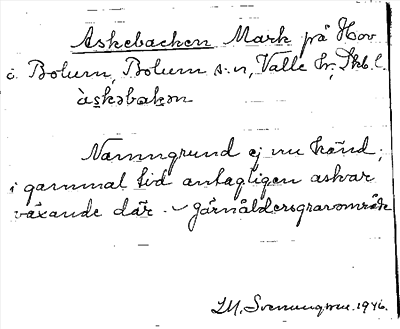 Askebacken Mark på Hov
i Bolum, Bolum s:n, Valle hr, Skb. l.
àskəbakən
Namngrund ej nu känd;
i gammal tid antagligen askar
växande där. – Järnåldersgravområde
1946.